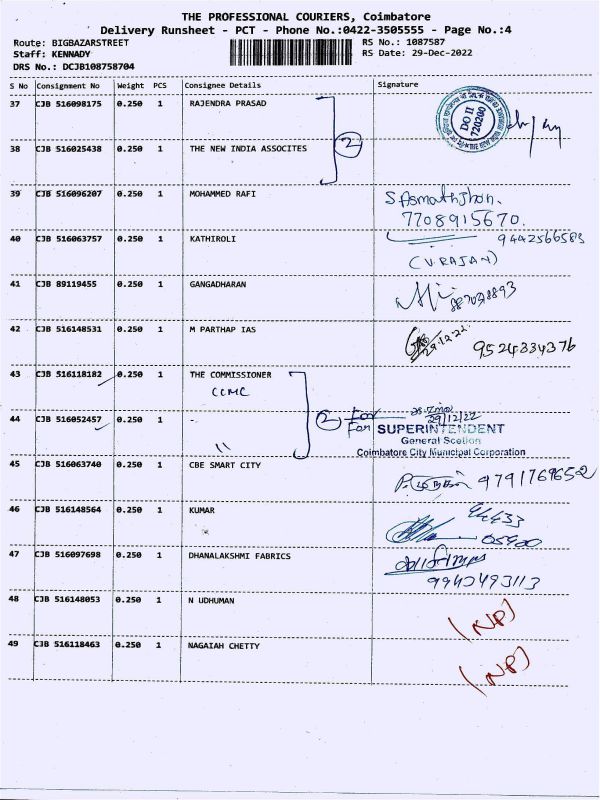 THE PROFESSIONAL COURIERS, Coimbatore
Delivery Runsheet - PCT - Phone No.:0422-3505555 - Page No.:4
Route: BIGBAZARSTREET RS No.: 1087587
Staff: KENNADY RS Date: 29-Dec-2022
DRS No.: DCJB108758704
S No Consignment No Weight PCS Consignee Details Signature
37 CJB 516098175 0.250 1 RAJENDRA PRASAD
DO II
720200
2
38 CJB 516025438 0.250 1 THE NEW INDIA ASSOCITES
39 CJB 516096207 0.250 1 MOHAMMED RAFI S Asmathjhon.
7708915670.
40 CJB 516063757 0.250 1 KATHIROLI 9442566583
(V.RAJAN)
41 CJB 89119455 0.250 1 GANGADHARAN
42 CJB 516148531 0.250 1 M PARTHAP IAS 29.12.22 9524334376
43 CJB 516118182 0.250 1 THE COMMISSIONER
CCMC
2 For 29/12/22
44 CJB 516052457 0.250 1 -. For SUPERINTENDENT
" General Section
Coimbatore City Municipal Corporation
45 CJB 516063740 0.250 1 CBE SMART CITY 9791769652
46 CJB 516148564 0.250 1 KUMAR 94433
05900
47 CJB 516097698 0.250 1 DHANALAKSHMI FABRICS
9940493113
48 CJB 516148053 0.250 1 N UDHUMAN (NP)
49 CJB 516118463 0.250 1 NAGAIAH CHETTY (NP)